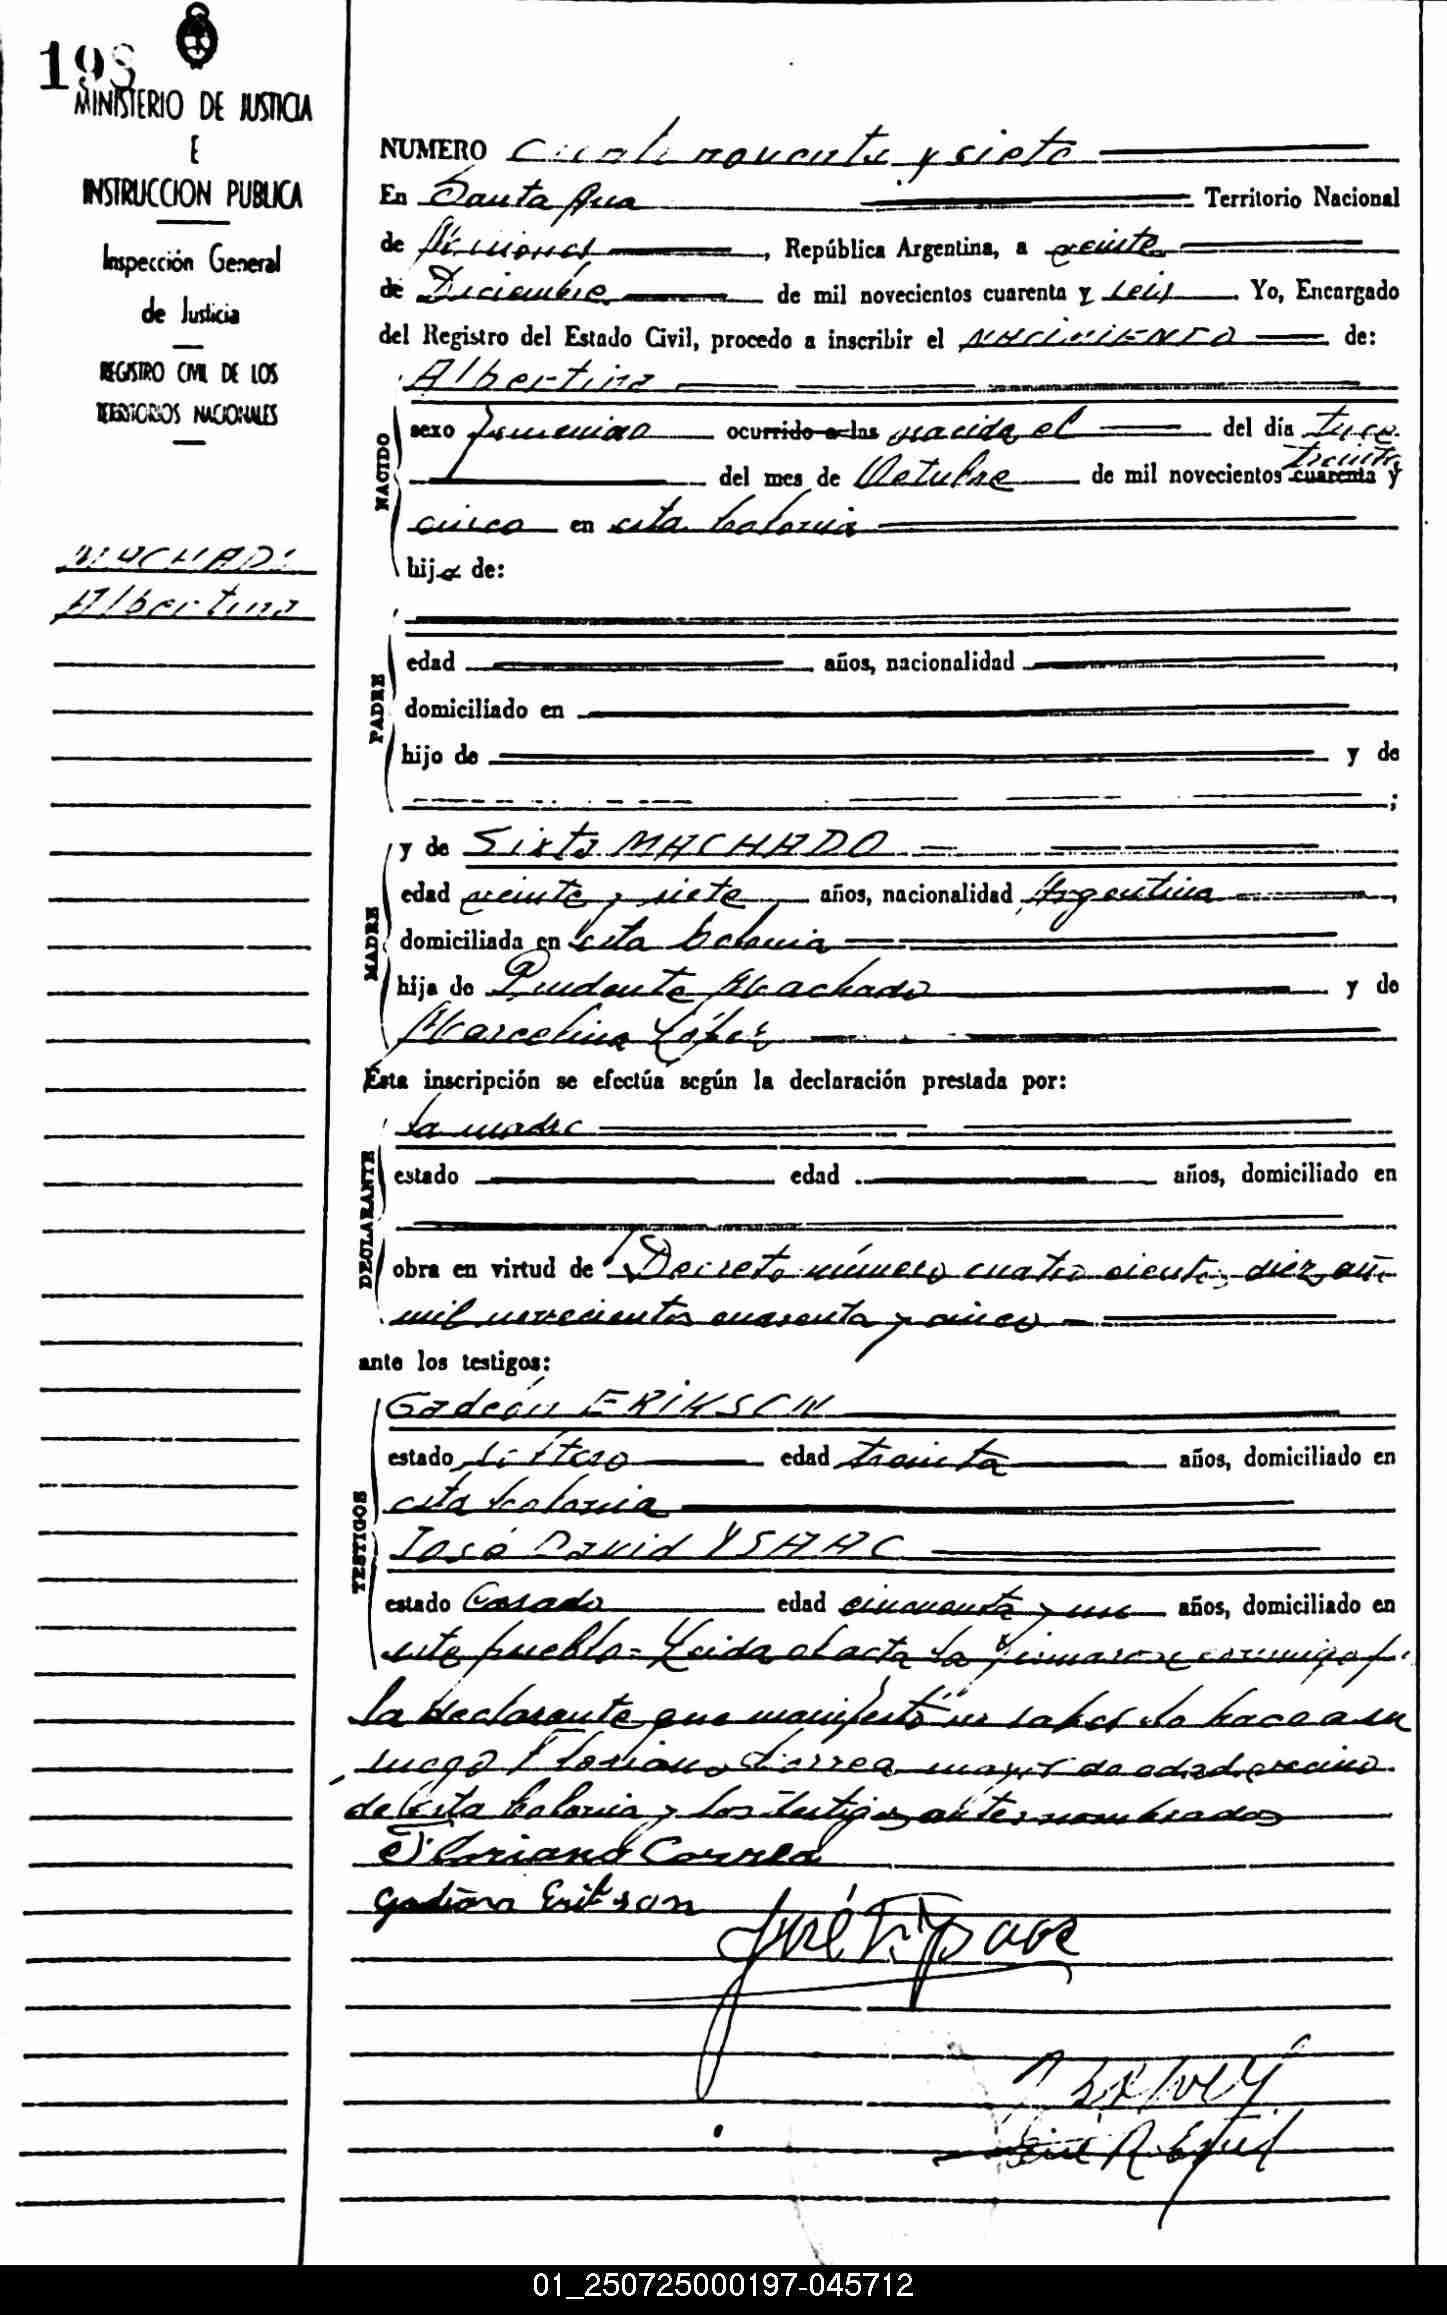 198
MINISTERIO DE JUSTICIA
E
INSTRUCCION PUBLICA
Inspección General
de Justicia
REGISTRO CIVIL DE LOS
TERRITORIOS NACIONALES
MACHADO
Albertina
NUMERO noventa y siete
En Santa Ana Territorio Nacional
de Misiones, República Argentina, a veinte
de Diciembre de mil novecientos cuarenta y seis. Yo, Encargado
del Registro del Estado Civil, procedo a inscribir el NACIMIENTO de:
Albertina
NACIDO
sexo femenino ocurrido a las nacida el del día
del mes de Octubre de mil novecientos cuarenta treinta y
cinco en esta Colonia
hija de:
PADRE
edad años, nacionalidad ,
domiciliado en
hijo de y de
;
MADRE
y de Sixta MACHADO
edad veinte y siete años, nacionalidad Argentina,
domiciliada en esta Colonia
hija de Prudente Machado y de
Marcelina López
Esta inscripción se efectúa según la declaración prestada por:
DECLARANTE
la madre
estado edad años, domiciliado en
obra en virtud de Decreto número cuatro cientos diez
mil novecientos cuarenta y cinco
ante los testigos:
TESTIGOS
Gadeón ERIKSON
estado soltero edad treinta años, domiciliado en
esta Colonia
José David YSAAC
estado Casado edad cincuenta y un años, domiciliado en
este pueblo = Leida el acta la firmaron conmigo
la declarante que manifestó no saber lo hace a su
ruego Floriano Correa mayor de edad vecino
de esta Colonia y los testigos antes nombrados
Floriano Correa
Erikson
José
01_250725000197-045712